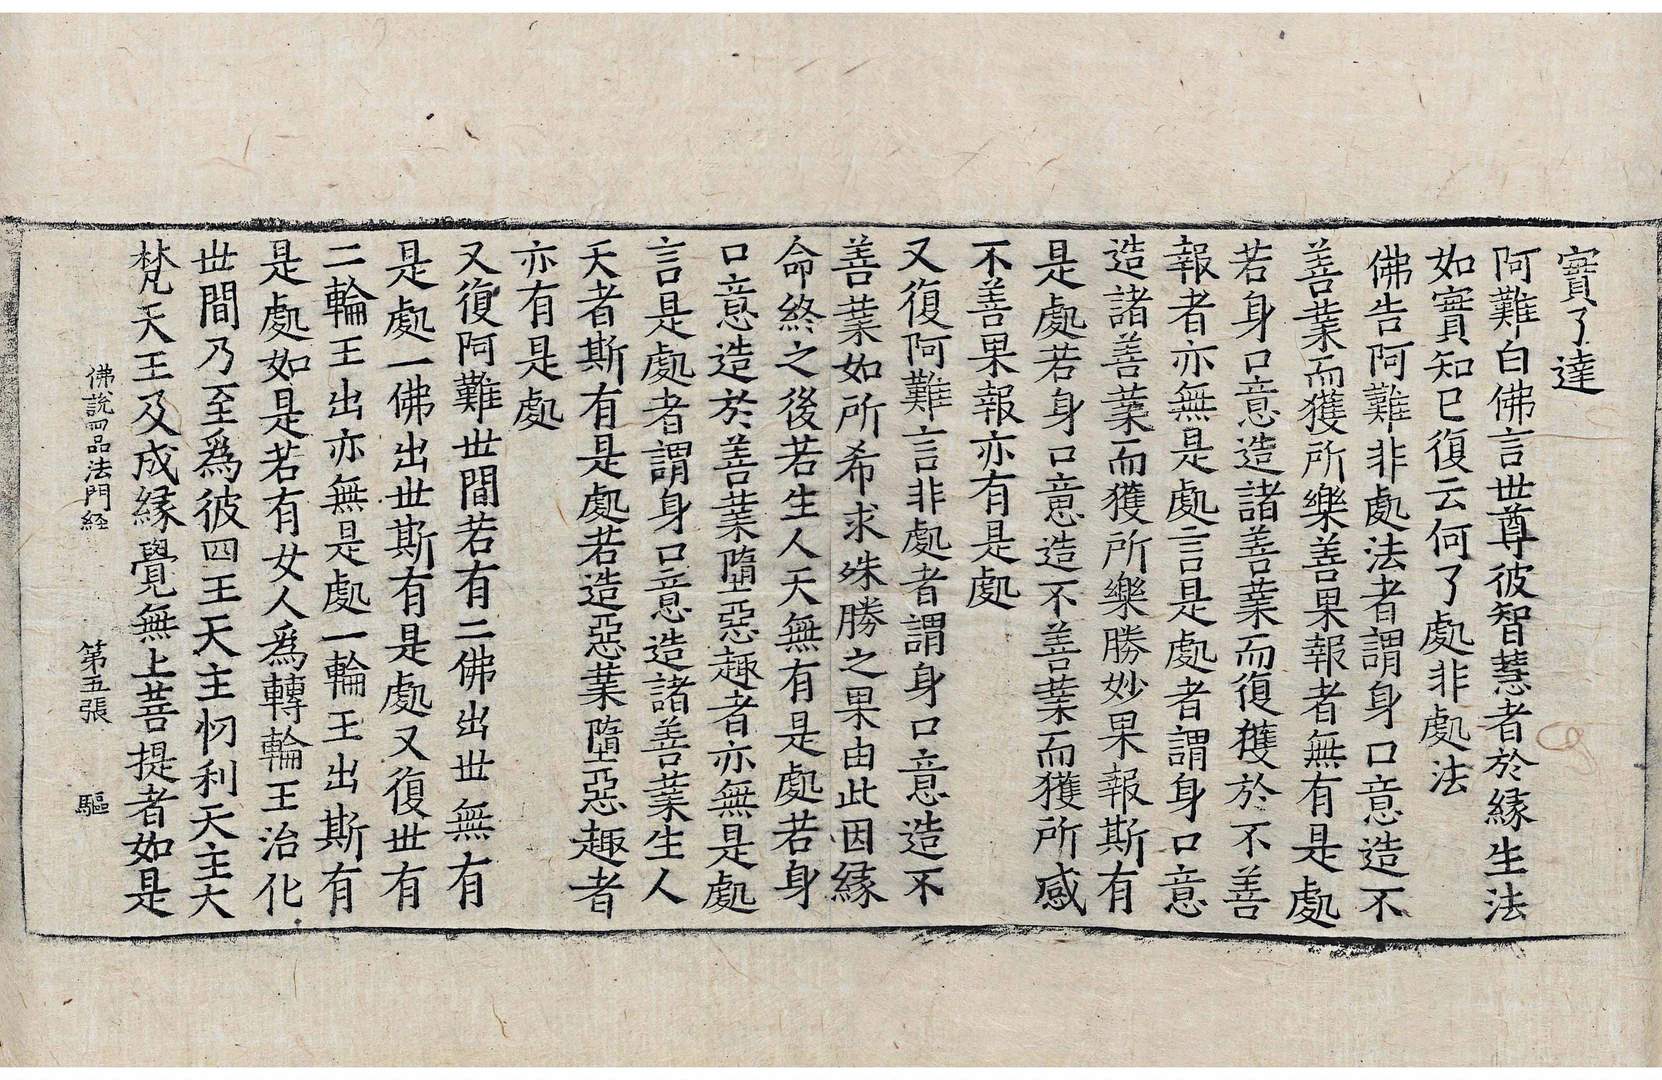 實了達
阿難白佛言世尊彼智慧者於緣生法
如實知已復云何了處非處法
佛告阿難非處法者謂身口意造不
善業而獲所樂善果報者無有是處
若身口意造諸善業而復獲於不善
報者亦無是處言是處者謂身口意
造諸善業而獲所樂勝妙果報斯有
是處若身口意造不善業而獲所感
不善果報亦有是處
又復阿難言非處者謂身口意造不
善業如所希求殊勝之果由此因緣
命終之後若生人天無有是處若身
口意造於善業墮惡趣者亦無是處
言是處者謂身口意造諸善業生人
天者斯有是處若造惡業墮惡趣者
亦有是處
又復阿難世間若有二佛出世無有
是處一佛出世斯有是處又復世有
二輪王出亦無是處一輪王出斯有
是處如是若有女人爲轉輪王治化
世間乃至爲彼四王天主忉利天主大
梵天王及成緣覺無上菩提者如是
佛說四品法門経　第五張　驅